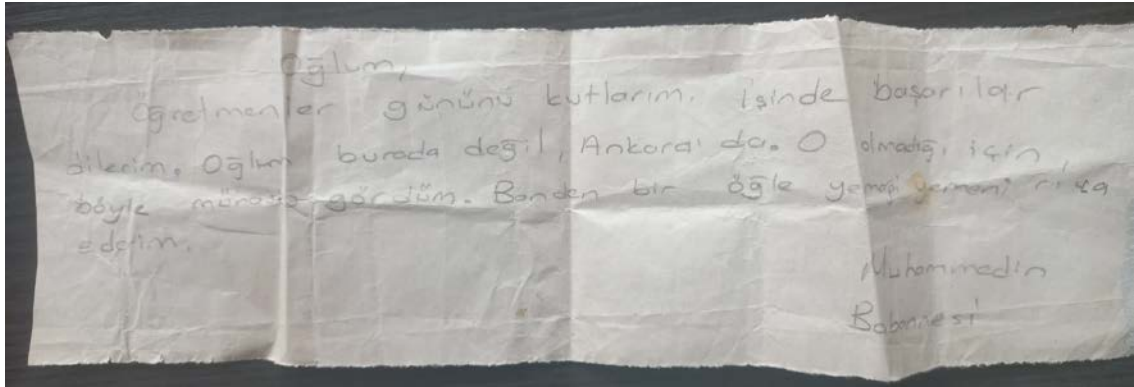 Oğlum,
Öğretmenler gününü kutlarım. İşinde başarılar
dilerim. Oğlum burada değil, Ankara'da. O olmadığı için
böyle gördüm. Benden bir öğle yemeği yemeni rica
ederim.
Muhammedin
Babannesi